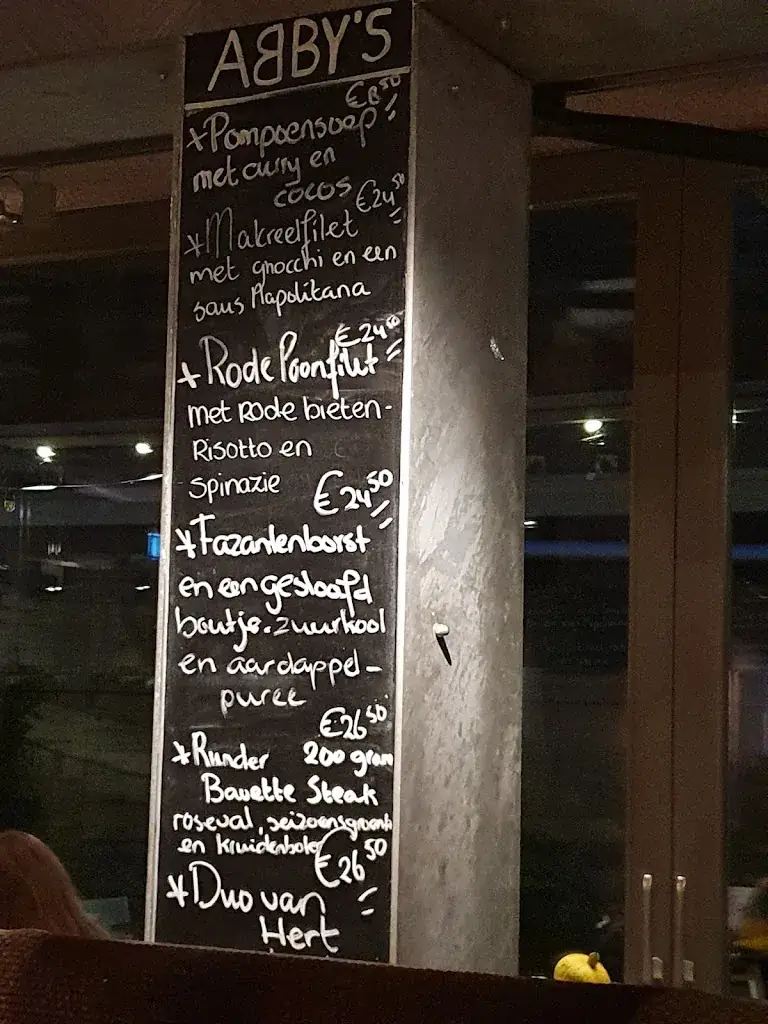 ABBY'S
€8⁵⁰
* Pompoensoep
met curry en
cocos
€24⁵⁰
* Makreelfilet
met gnocchi en een
saus Napolitana
€24⁵⁰
* Rode Poonfilet
met Rode bieten-
Risotto en
Spinazie
€24⁵⁰
* Fazantenborst
en een gestoofd
boutje. zuurkool
en aardappel-
puree
€26⁵⁰
* Runder 200 gram
Bavette Steak
roseval, seizoensgroente
en kruidenboter
€26⁵⁰
* Duo van
Hert